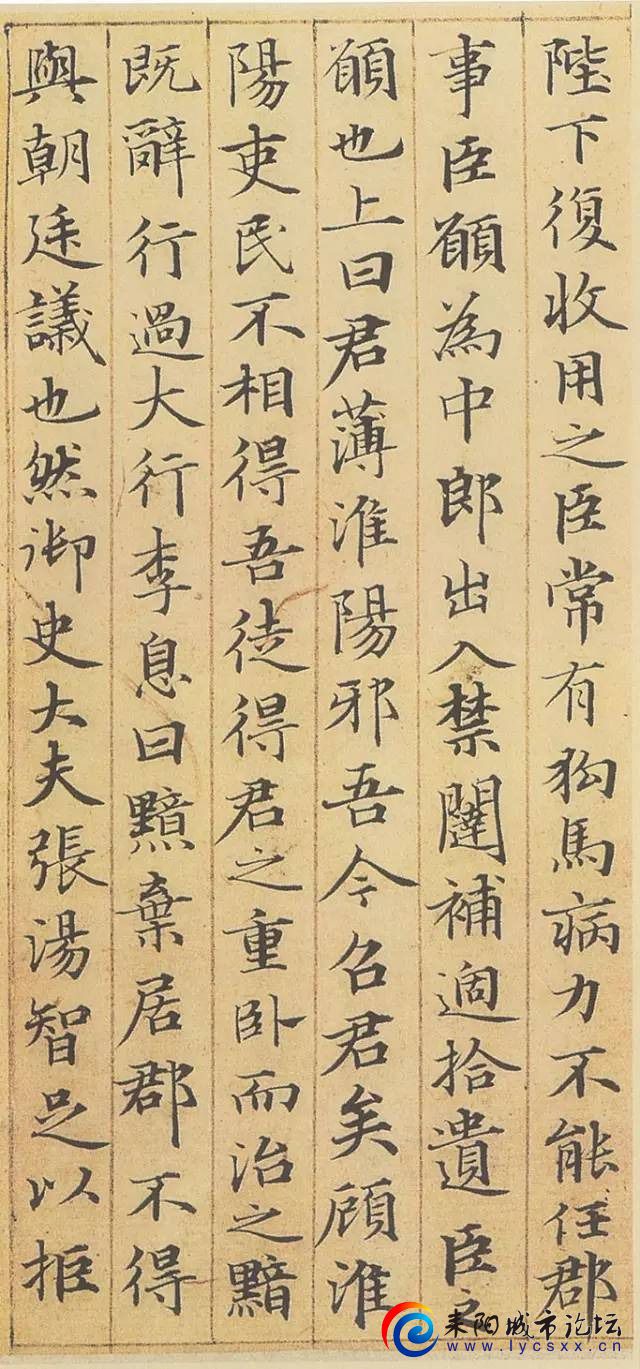 陛下復收用之臣常有狗馬病力不能任郡
事臣願為中郎出入禁闥補過拾遺臣之
願也上曰君薄淮陽邪吾今召君矣顧淮
陽吏民不相得吾徒得君之重臥而治之黯
既辭行過大行李息曰黯棄居郡不得
與朝廷議也然御史大夫張湯智足以拒
耒阳城市论坛
www.lycsxx.cn